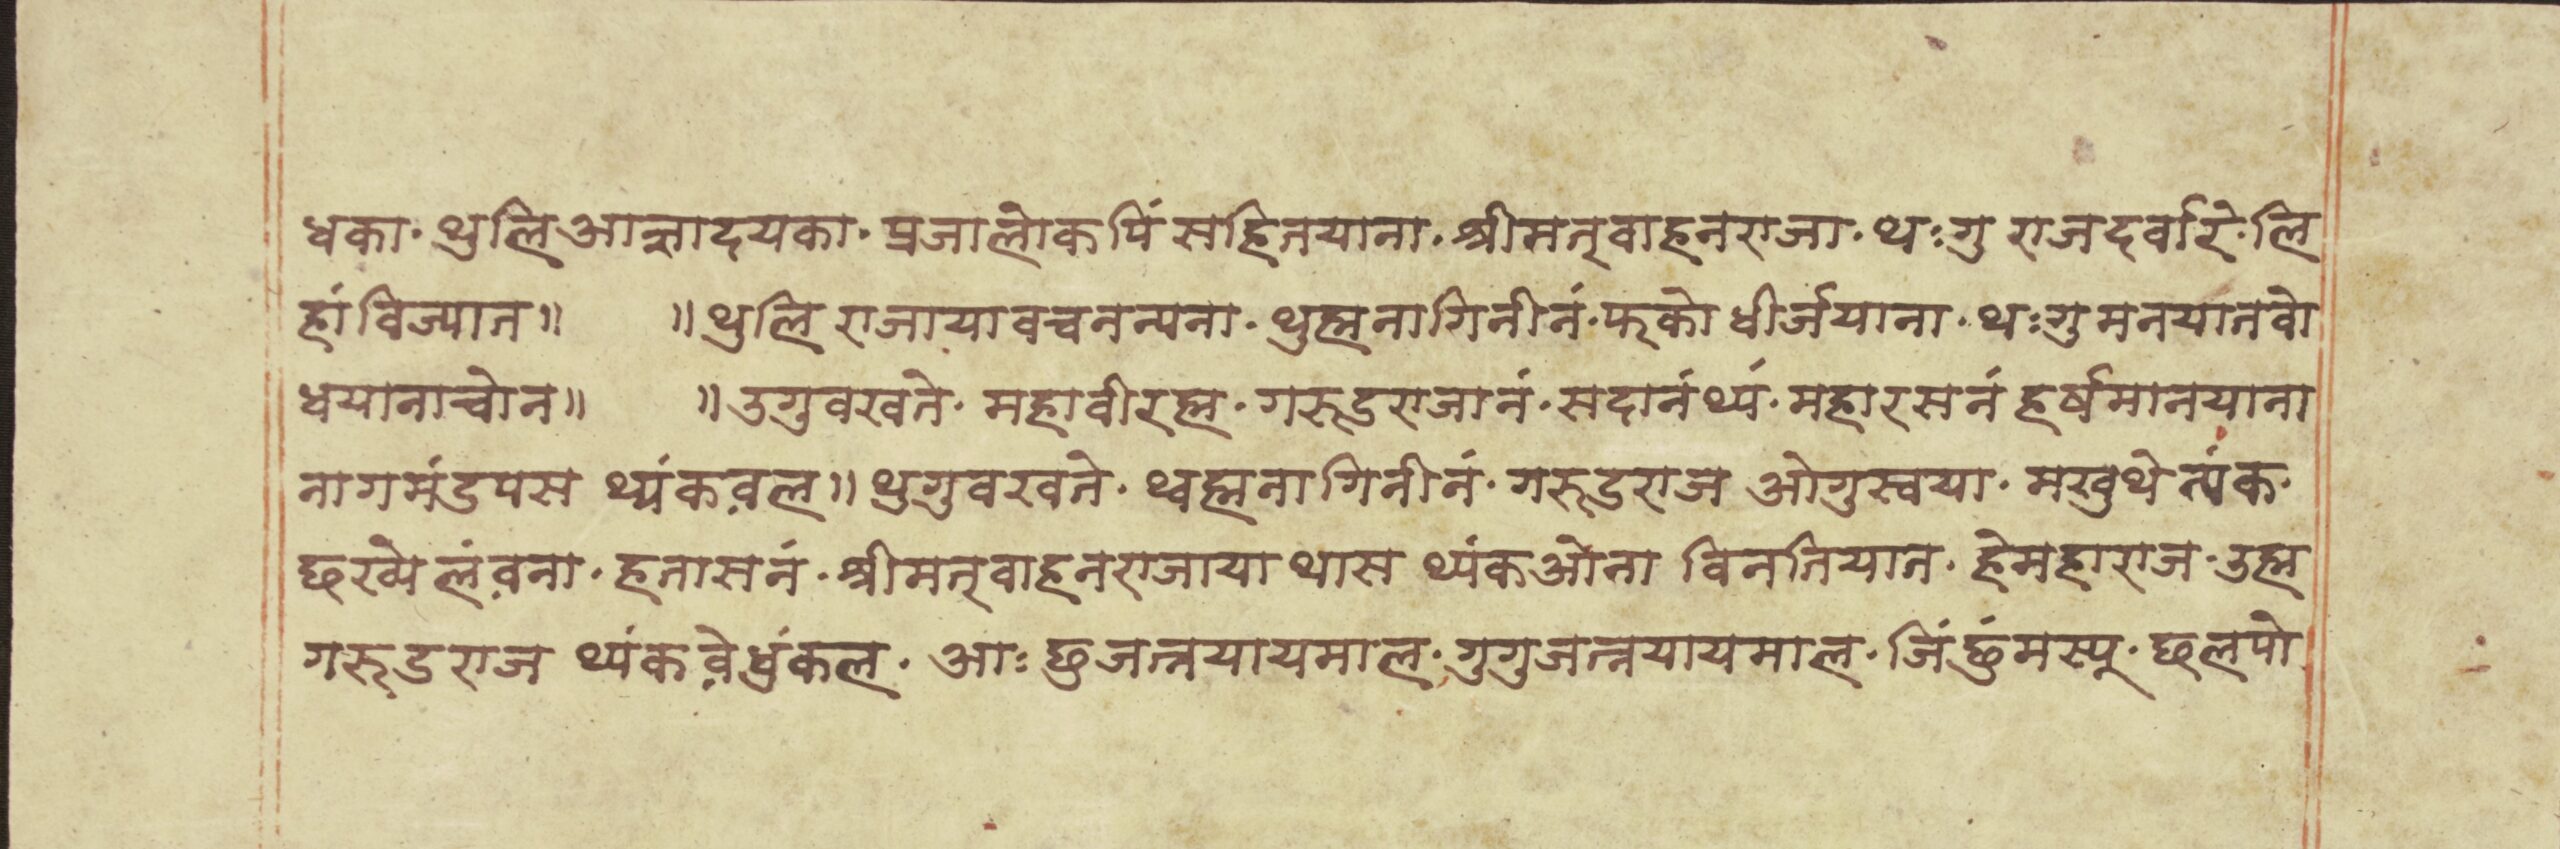 धका· थुलि आज्ञादयका· प्रजालोकपिं सहितयाना· श्रीमत्वाहनराजा· थःगु राजदर्वारे· लि
हां विज्यात॥ ॥थुलि राजाया वचनन्यना· थुह्मनागिनीनं· फक्को धीर्जयाना· थःगु मनयातवो
धयानाचोन॥ ॥उगुवखते· महावीरह्म· गरूडराजानं· सदानंथ्यं· महारसनं हर्षमानयाना
नागमंडपस थ्यंकवल॥ थुगुवखते· थ्वह्मनागिनीनं· गरूडराज ओगुस्वया· मखुथे त्यंक·
छखेलंवना· हतासनं· श्रीमत्वाहनराजाया थास थ्यंकओना विनतियात· हेमहाराज· उह्म
गरूडराज थ्यंक वेधुंकल· आः छुजत्नयायमाल· गुगुजत्नयायमाल· जिं छुंमस्यू· छलपो